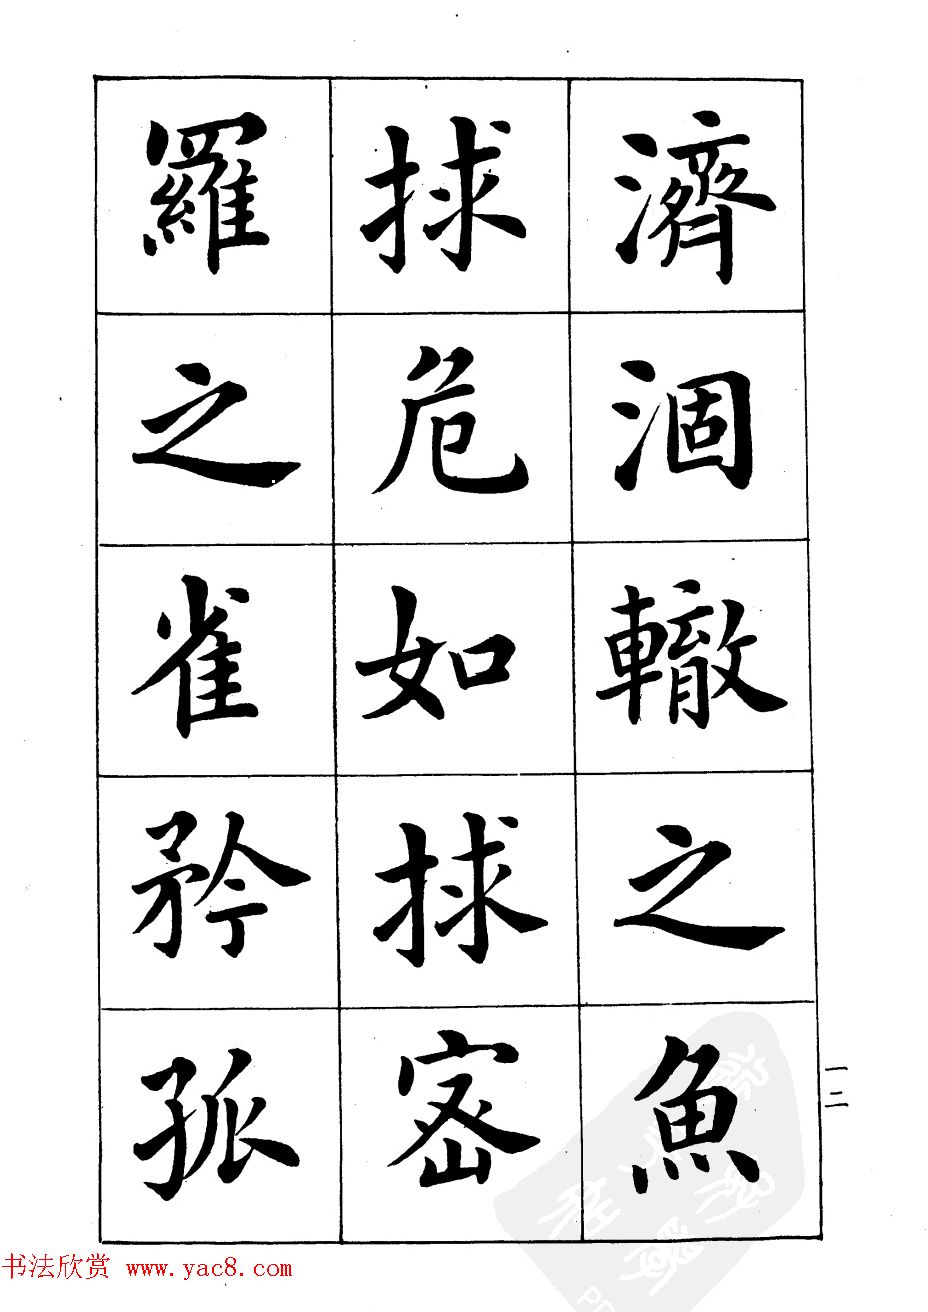 濟涸轍之魚
捄危如捄密
羅之雀矜孤
一二
书法欣赏 www.yac8.com